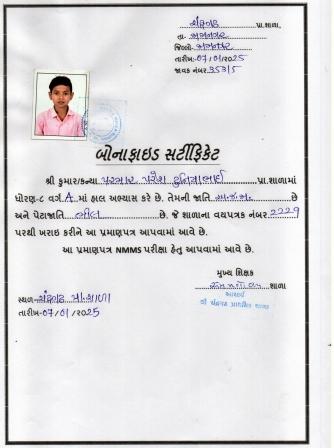 ચંદ્રગઢ પ્રા.શાળા,
તા. અમનગર
જિલ્લો.
તારીખ:-07/01/2025
જાવક નંબર 353/5
બોનાફાઇડ સર્ટીફિકેટ
શ્રી કુમાર/કન્યા પરમાર પરેશ પ્રા.શાળામાં
ધોરણ-૮ વર્ગ A માં હાલ અભ્યાસ કરે છે. તેમની જાતિ છે
અને પેટાજાતિ ભીલ છે. જે શાળાના વયપત્રક નંબર 2229
પરથી ખરાઇ કરીને આ પ્રમાણપત્ર આપવામાં આવે છે.
આ પ્રમાણપત્ર NMMS પરીક્ષા હેતુ આપવામાં આવે છે.
મુખ્ય શિક્ષક
શાળા
આચાર્ય
શ્રી ચંદ્રગઢ પ્રાથમિક શાળા
સ્થળ:- ચંદ્રગઢ પ્રા.શાળા
તારીખ:-07/01/2025